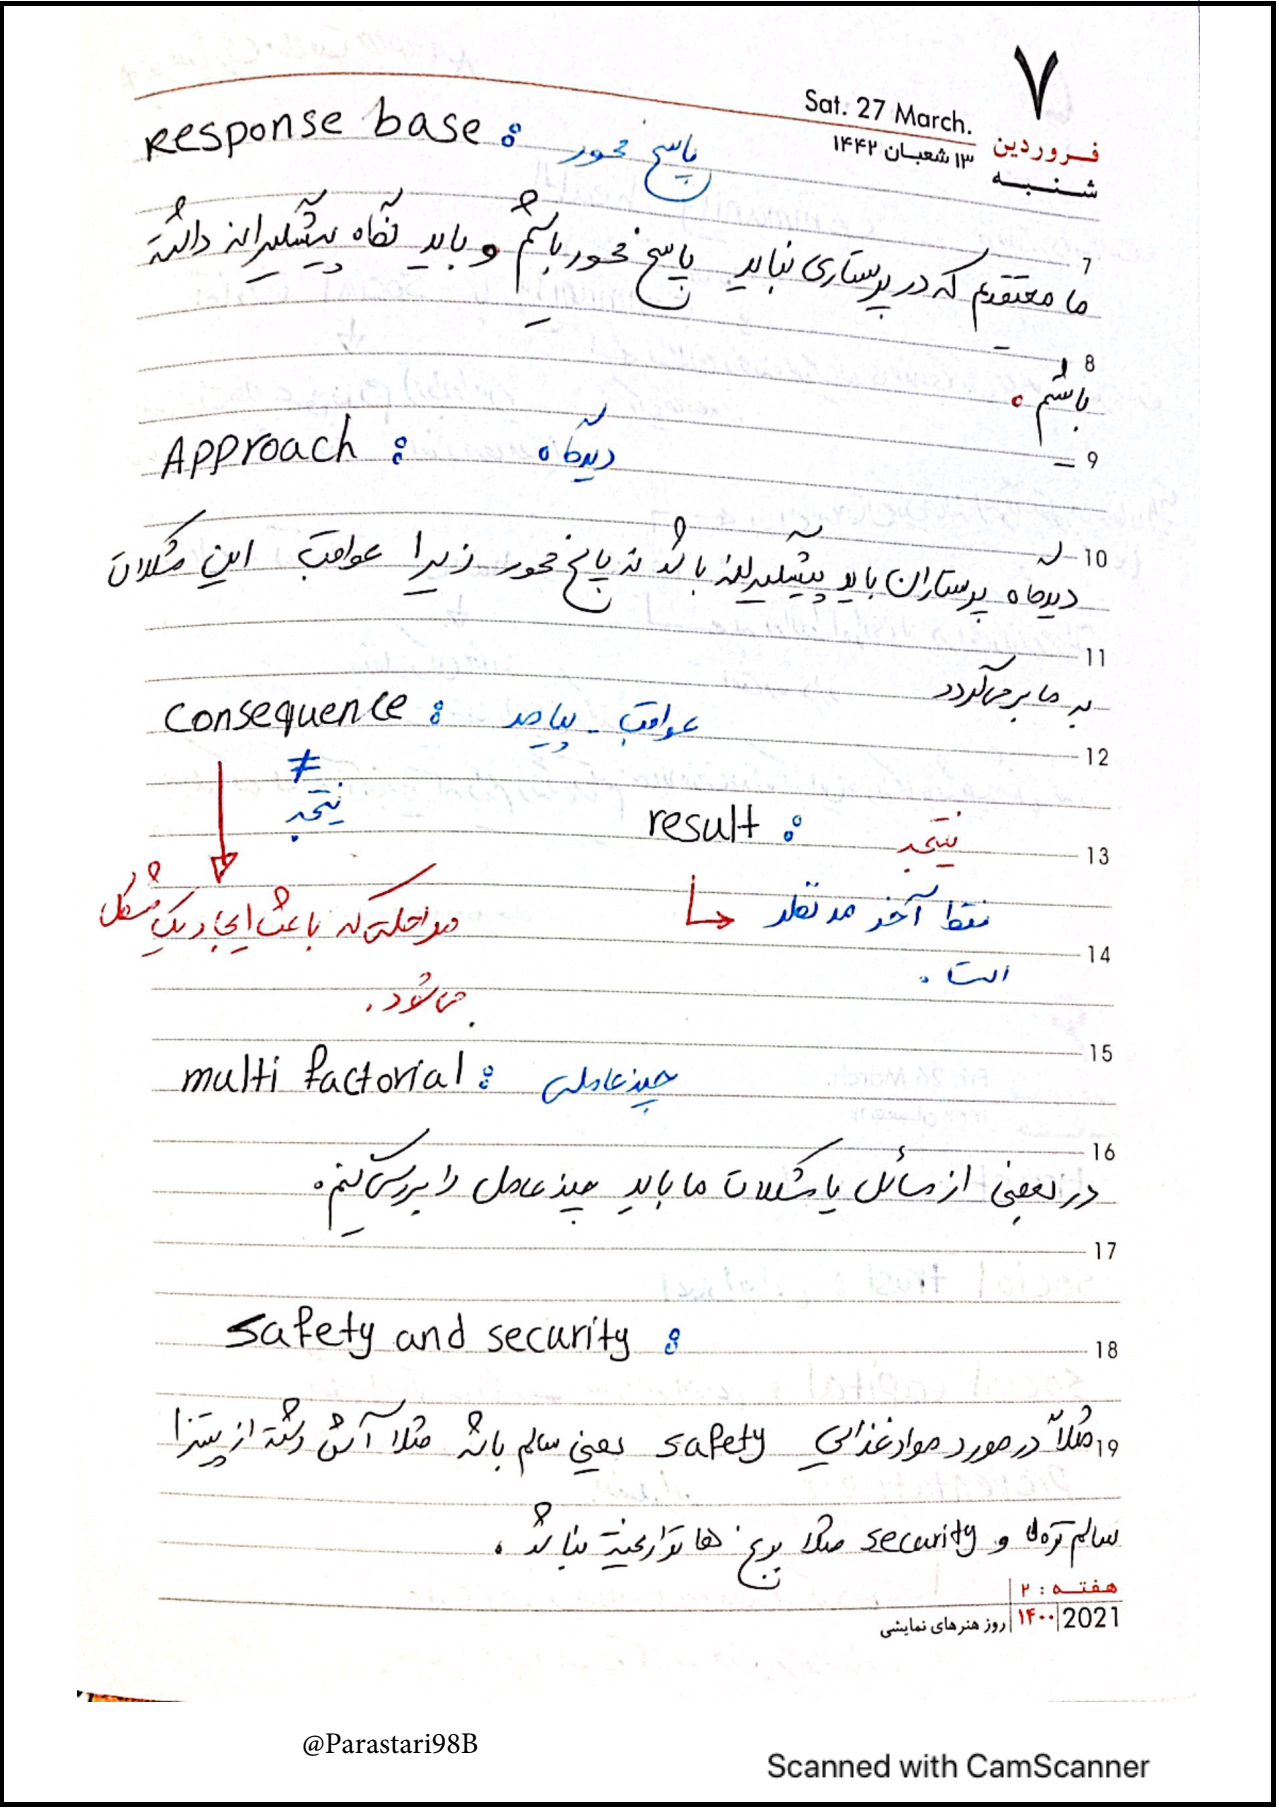 ۷
Sat. 27 March.
فروردین
۱۳ شعبان ۱۴۴۲
شنبه
Response base : پاسخ محور
7
ما معتقدیم که در پرستاری نباید پاسخ محور باشیم و باید نگاه پیشگیرانه داشته
8
باشیم .
9
Approach : دیدگاه
10
دیدگاه پرستاران باید پیشگیرانه باشد نه پاسخ محور زیرا عواقب این مشکلات
11
به ما برمی‌گردد
Consequence : عواقب - پیامد
12
≠
نتیجه
result : نتیجه
13
مراحلی که باعث ایجاد یک مشکل
می شود .
نقطه آخر مد نظر
14
است .
15
multi factorial : چند عاملی
16
در بعضی از مسائل یا مشکلات ما باید چند عامل را بررسی کنیم .
17
Safety and security :
18
19 مثلاً در مورد مواد غذایی safety یعنی سالم باشد مثلا آش رشته از پیتزا
سالم تره و security مثلا برنج ها تراریخته نباشد .
هفته : ۲
2021 | ۱۴۰۰ | روز هنرهای نمایشی
@Parastari98B
Scanned with CamScanner